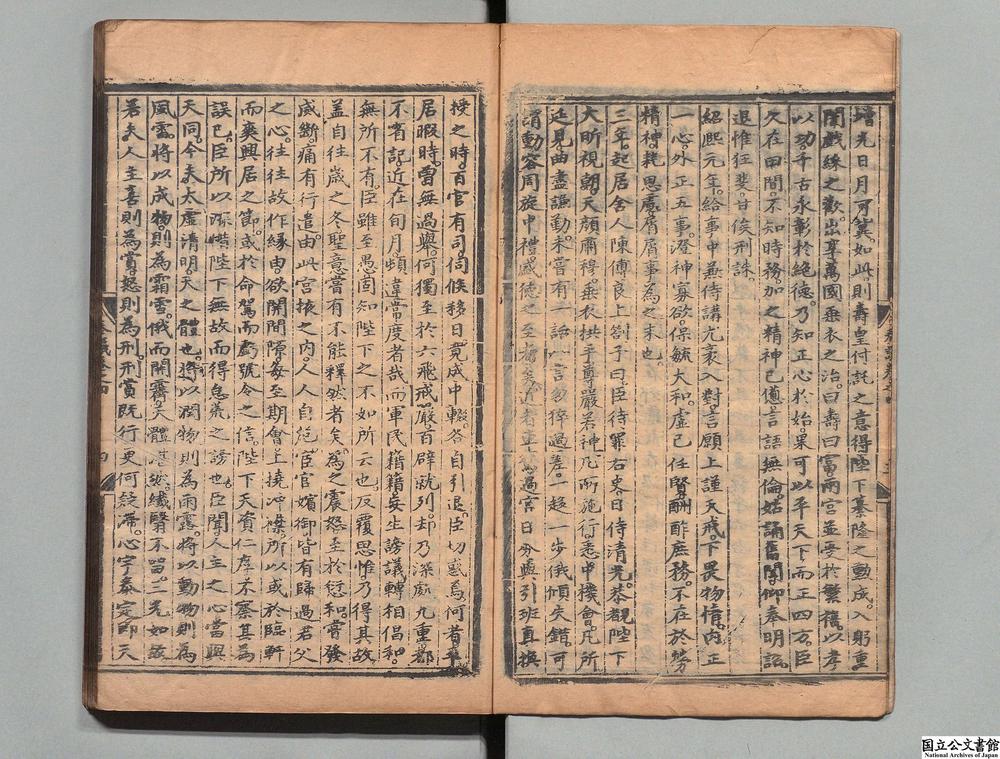 增光日月可冀如此則壽皇付託之意得陛下基隆之勳成入躬重
闈戲綵之歡出享萬國垂衣之治曰壽曰富兩宮並受於繁禧以孝
以功千古永彰於絶德乃知正心於始果可以平天下而正四方臣
久在田間不知時務加之精神已憊言語無倫姑誦舊聞仰奉明詔
退惟狂斐甘俟刑誅
紹熙元年給事中兼侍講尤袤入對言願上謹天戒下畏物情内正
一心外正五事澄神寡欲保毓大和虛己任賢酬酢庶務不在於勞
精神耗思慮屑屑事為之末也
三年起居舍人陳傅良上劄子曰臣待罪右史日侍清光恭覩陛下
大昕視朝天顔肅穆垂衣拱手尊嚴若神凡所施行悉中機會凡所
延見曲盡謳動未嘗有一話一言忽猝過差一趨一步俄傾失錯可
謂動容周旋中禮盛德之至者矣近者重 過宮日分輿引班直撰
授之時百官有司伺候移日竟成中輟各自引退臣切惑焉何者平
居暇時曾無過舉何獨至於六飛戒嚴百辟就列却乃深處九重都
不省記近在旬月頻違常度者哉而軍民籍籍妄生謗議轉相倡和
無所不有臣雖至愚固知陛下之不如所云也反覆思惟乃得其故
盖自往歲之冬聖意嘗有不能釋然者矣為之震怒至於愆和嘗發
威斷痛有行遣由此宮掖之内人人自危臣官嬪御皆有歸過君父
之心往往故作緣由欲開間隙每至期會上撓冲襟所以或於臨軒
而爽興居之節或於命駕而虧號令之信陛下天資仁厚不察其為
誤已臣所以深惜陛下無故而得怠荒之謗也臣聞人主之心當與
天同今夫太虛清明天之體也將以潤物則為雨露將以動物則為
風雷將以成物則為霜雪俄而開霽天體湛然纎翳不留三光如故
若夫人主喜則為賞怒則為刑刑賞既行更何疑滯心宇泰定即天
国立公文書館
National Archives of Japan